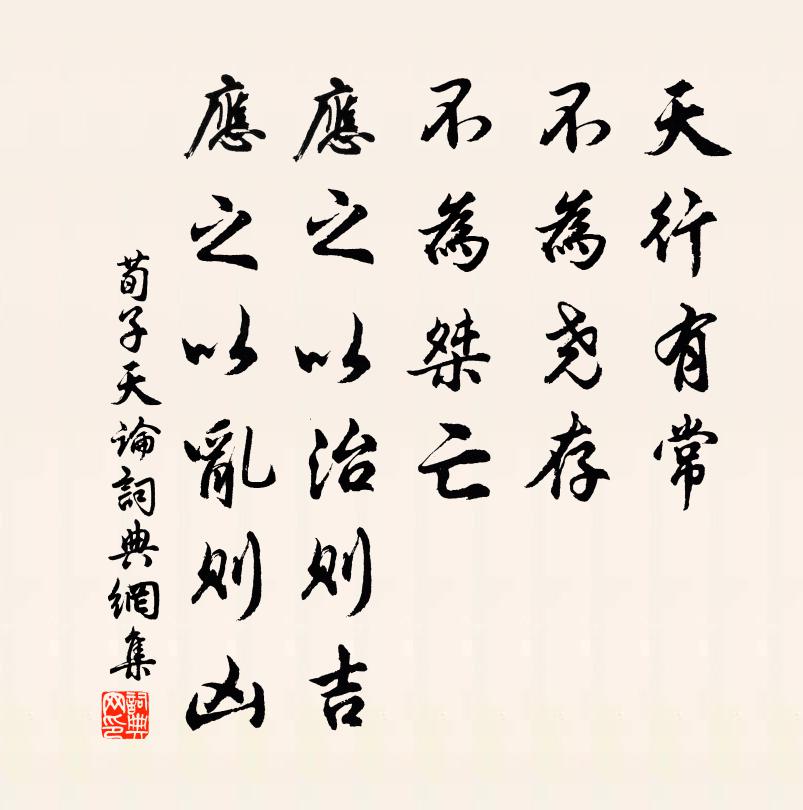 天行有常
不為尧存
不為桀亡
應之以治則吉
應之以亂則凶
荀子天論詞典網集
詞典網印